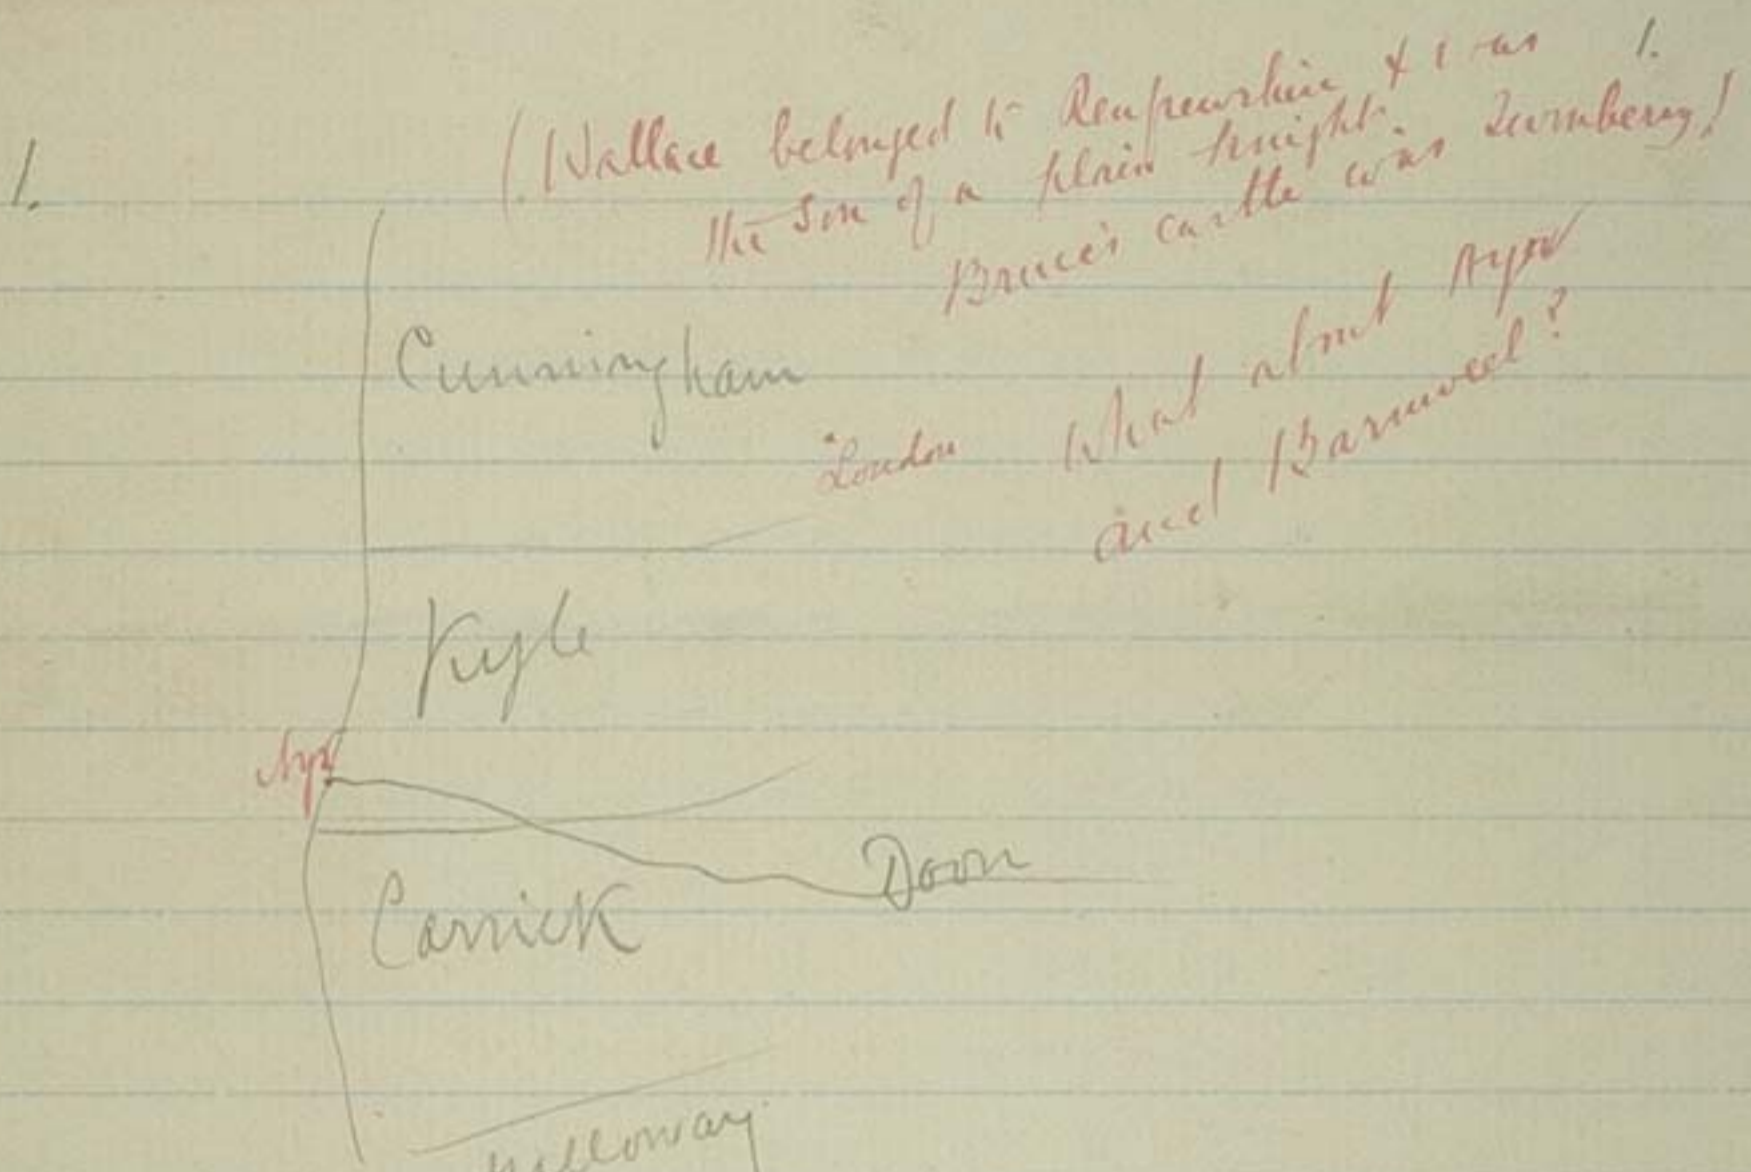 1.
1.
(Wallace belonged to Renfrewshire & was
the son of a plain knight.
Bruce's castle was Turnberry!
What about Ayr
and Barnweel?
Cunningham
Loudon
Kyle
Ayr
Doon
Carrick
Galloway